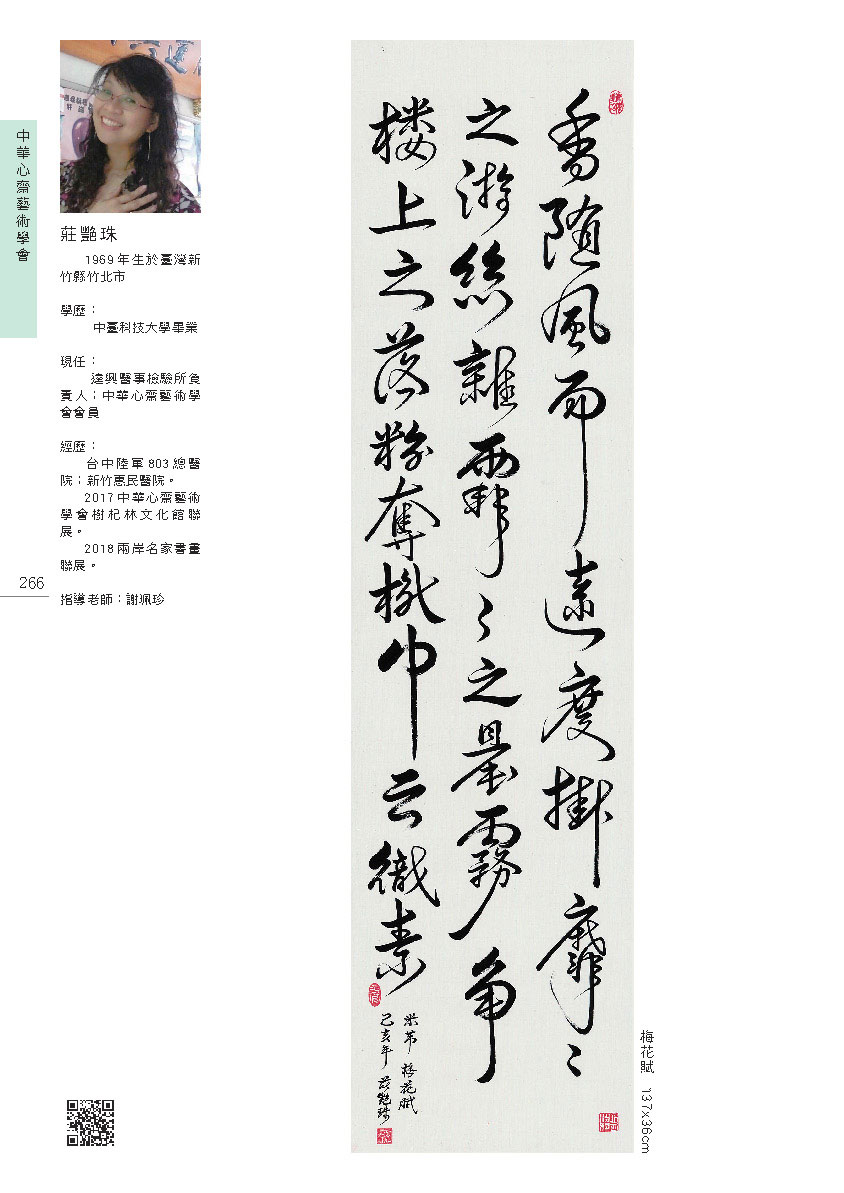 中華心齋藝術學會
莊艷珠
1969 年生於臺灣新
竹縣竹北市
學歷：
中臺科技大學畢業
現任：
達興醫事檢驗所負
責人；中華心齋藝術學
會會員
經歷：
台中陸軍 803 總醫
院；新竹惠民醫院。
2017 中華心齋藝術
學會樹杞林文化館聯
展。
2018 兩岸名家書畫
聯展。
指導老師：謝珮珍
266
香随風而遠度掛靡〻
之游絲雜霏〻之晨霧爭
楼上之落粉奪機中之織素
米芾 梅花賦
己亥年 莊艷珠
梅花賦 137x36cm